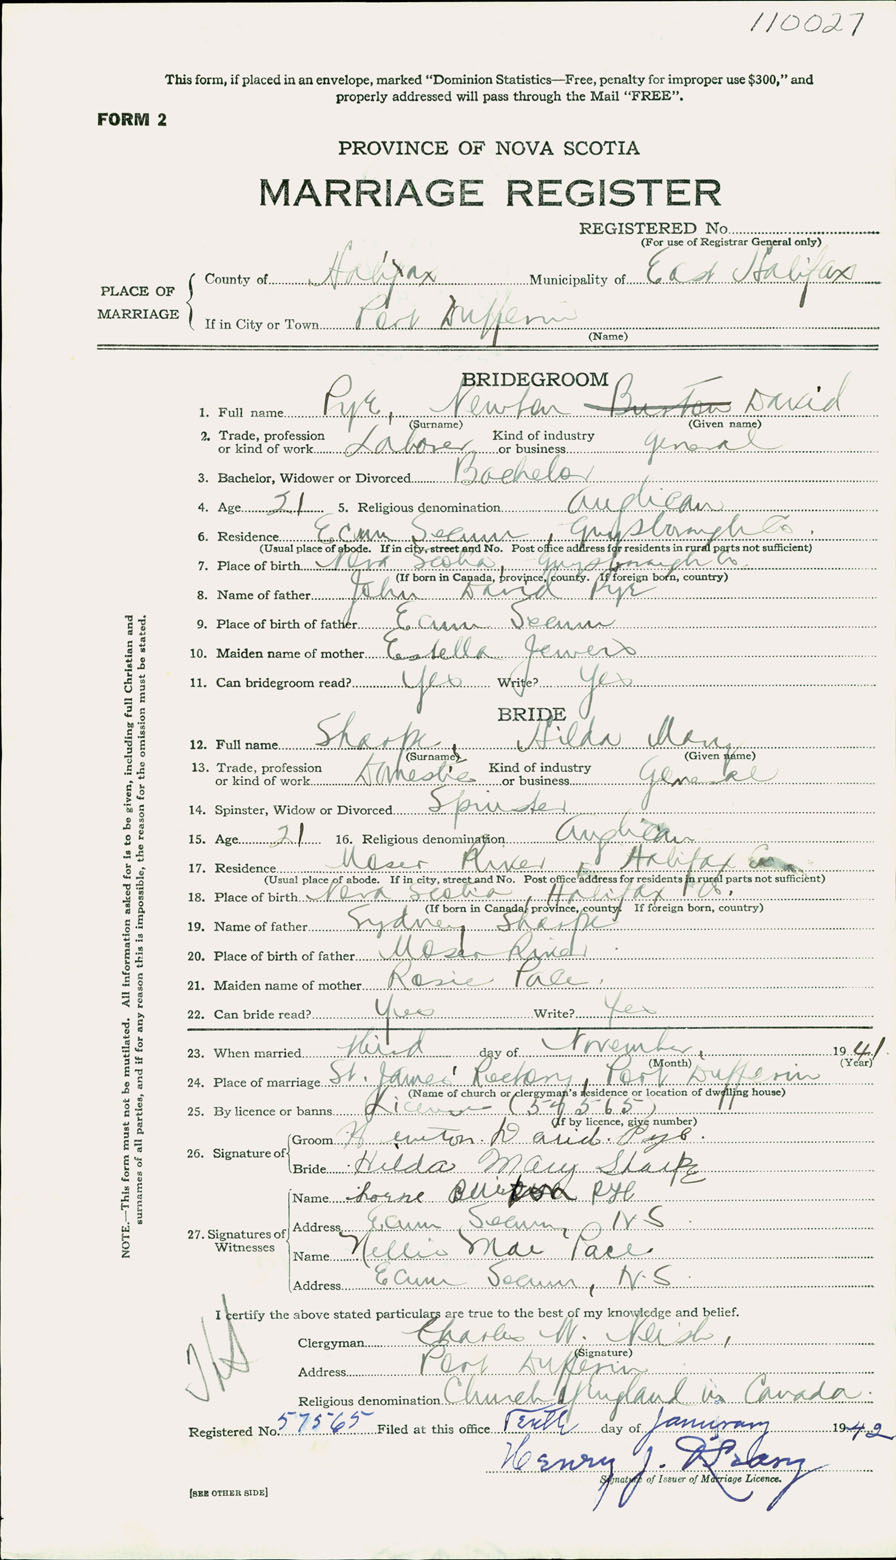 110027
This form, if placed in an envelope, marked “Dominion Statistics—Free, penalty for improper use $300,” and
properly addressed will pass through the Mail “FREE”.
FORM 2
PROVINCE OF NOVA SCOTIA
MARRIAGE REGISTER
REGISTERED No.
(For use of Registrar General only)
PLACE OF MARRIAGE
County of Halifax Municipality of East Halifax
If in City or Town Port Dufferin
(Name)
BRIDEGROOM
1. Full name Pye, Newton Burton David
(Surname) (Given name)
2. Trade, profession or kind of work Laborer Kind of industry or business general
3. Bachelor, Widower or Divorced Bachelor
4. Age 21 5. Religious denomination Anglican
6. Residence Ecum Secum, Guysborough Co.
(Usual place of abode. If in city, street and No. Post office address for residents in rural parts not sufficient)
7. Place of birth Nova Scotia, Guysborough Co.
(If born in Canada, province, county. If foreign born, country)
8. Name of father John David Pye
9. Place of birth of father Ecum Secum
10. Maiden name of mother Estella Jewers
11. Can bridegroom read? Yes Write? Yes
BRIDE
12. Full name Sharpe, Hilda Mary
(Surname) (Given name)
13. Trade, profession or kind of work Domestic Kind of industry or business General
14. Spinster, Widow or Divorced Spinster
15. Age 21 16. Religious denomination Anglican
17. Residence Moser River, Halifax Co
(Usual place of abode. If in city, street and No. Post office address for residents in rural parts not sufficient)
18. Place of birth Nova Scotia, Halifax Co.
(If born in Canada, province, county. If foreign born, country)
19. Name of father Sydney Sharpe
20. Place of birth of father Moser River
21. Maiden name of mother Rosie Pace.
22. Can bride read? Yes Write? Yes
23. When married third day of November, 1941
(Month) (Year)
24. Place of marriage St. James' Rectory, Port Dufferin
(Name of church or clergyman's residence or location of dwelling house)
25. By licence or banns License (54565)
(If by licence, give number)
26. Signature of
Groom Newton David Pye.
Bride Hilda Mary Sharpe
27. Signatures of Witnesses
Name Lorne Burton Pye
Address Ecum Secum, N S
Name Nellie Mae Pace
Address Ecum Secum, N.S.
I certify the above stated particulars are true to the best of my knowledge and belief.
Clergyman Charles W. Neish,
(Signature)
Address Port Dufferin
Religious denomination Church of England in Canada.
Registered No. 57565 Filed at this office Tenth day of January 1942
Henry J.
Signature of Issuer of Marriage Licence.
[SEE OTHER SIDE]
NOTE.—This form must not be mutilated. All information asked for is to be given, including full Christian and
surnames of all parties, and if for any reason this is impossible, the reason for the omission must be stated.